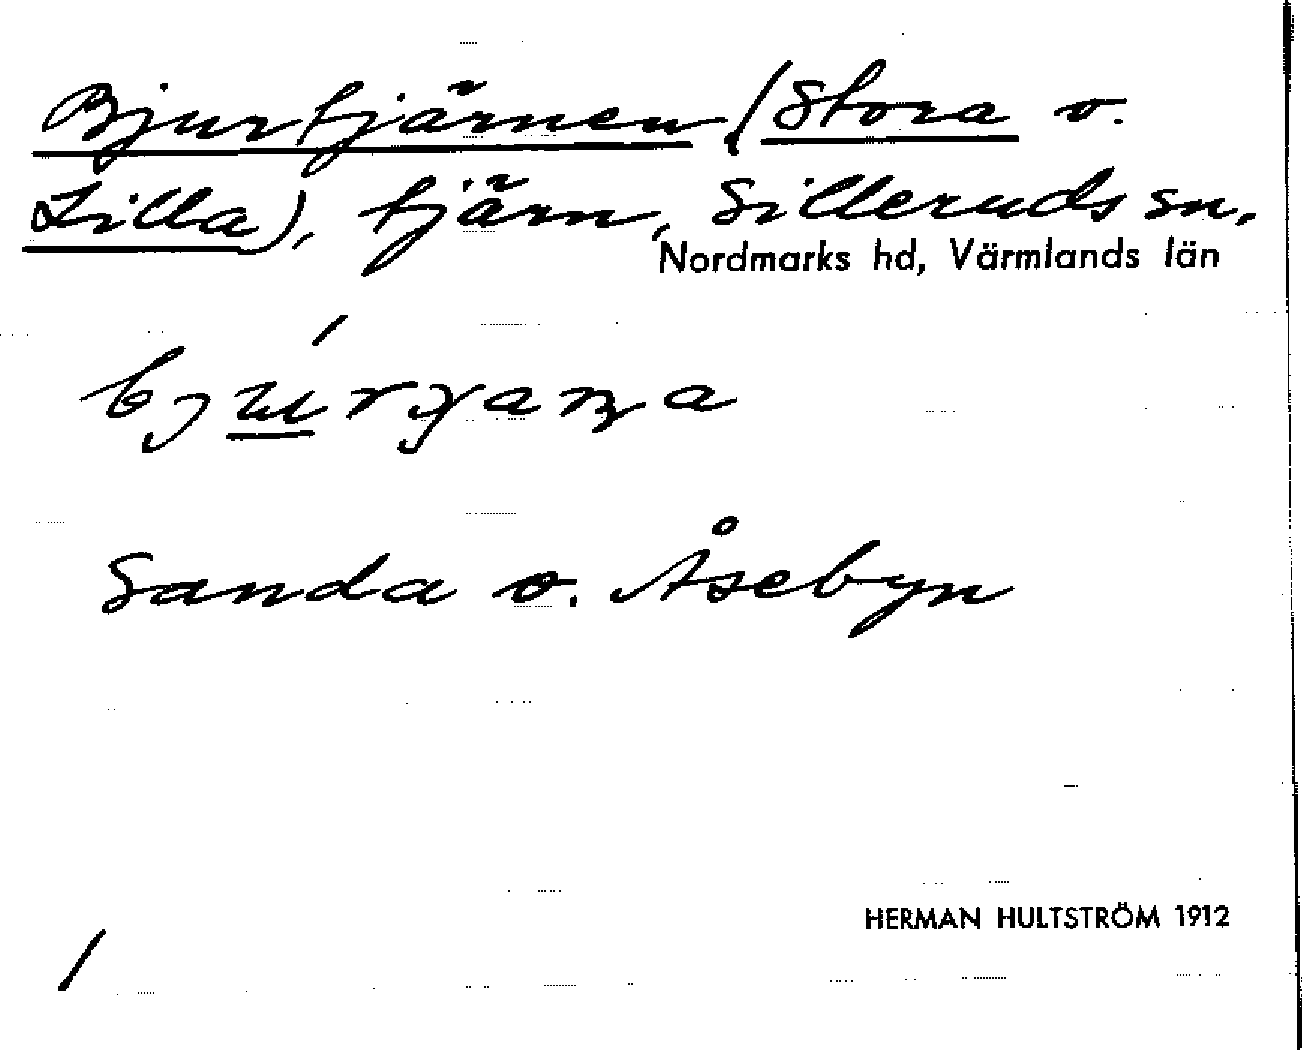 Bjurtjärnen (Stora o.
Lilla), tjärn, Silleruds sn,
Nordmarks hd, Värmlands län
Sanda o. Åsebyn
HERMAN HULTSTRÖM 1912